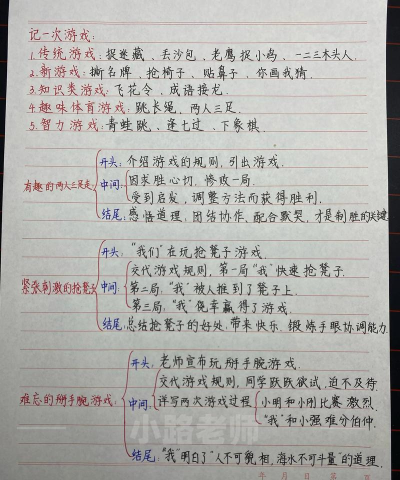 记一次游戏:
1.传统游戏:捉迷藏、丢沙包、老鹰捉小鸡、一二三木头人.
2.新游戏:撕名牌、抢椅子、贴鼻子、你画我猜.
3.知识类游戏:飞花令、成语接龙.
4.趣味体育游戏:跳长绳,两人三足.
5.智力游戏:青蛙跳、逢七过、下象棋.
有趣的两人三足走
开头:介绍游戏的规则,引出游戏.
中间:因求胜心切,惨败一局.
受到启发,调整方法而获得胜利.
结尾:感悟道理,团结协作,配合默契,才是制胜的关键
紧张刺激的抢凳子
开头:“我们”在玩抢凳子游戏.
中间:交代游戏规则,第一局“我”快速抢凳子.
第二局:“我”被人推到了凳子上.
第三局:“我”侥幸赢得了游戏.
结尾:总结抢凳子的好处,带来快乐,锻炼手眼协调能力.
难忘的掰手腕游戏:
开头:老师宣布玩掰手腕游戏.
中间:交代游戏规则,同学跃跃欲试,迫不及待.
详写两次游戏过程
小明和小刚比赛激烈.
“我”和小强难分伯仲.
结尾:“我”明白了“人不可貌相,海水不可斗量”的道理.
小路老师
年 月 日 第 页